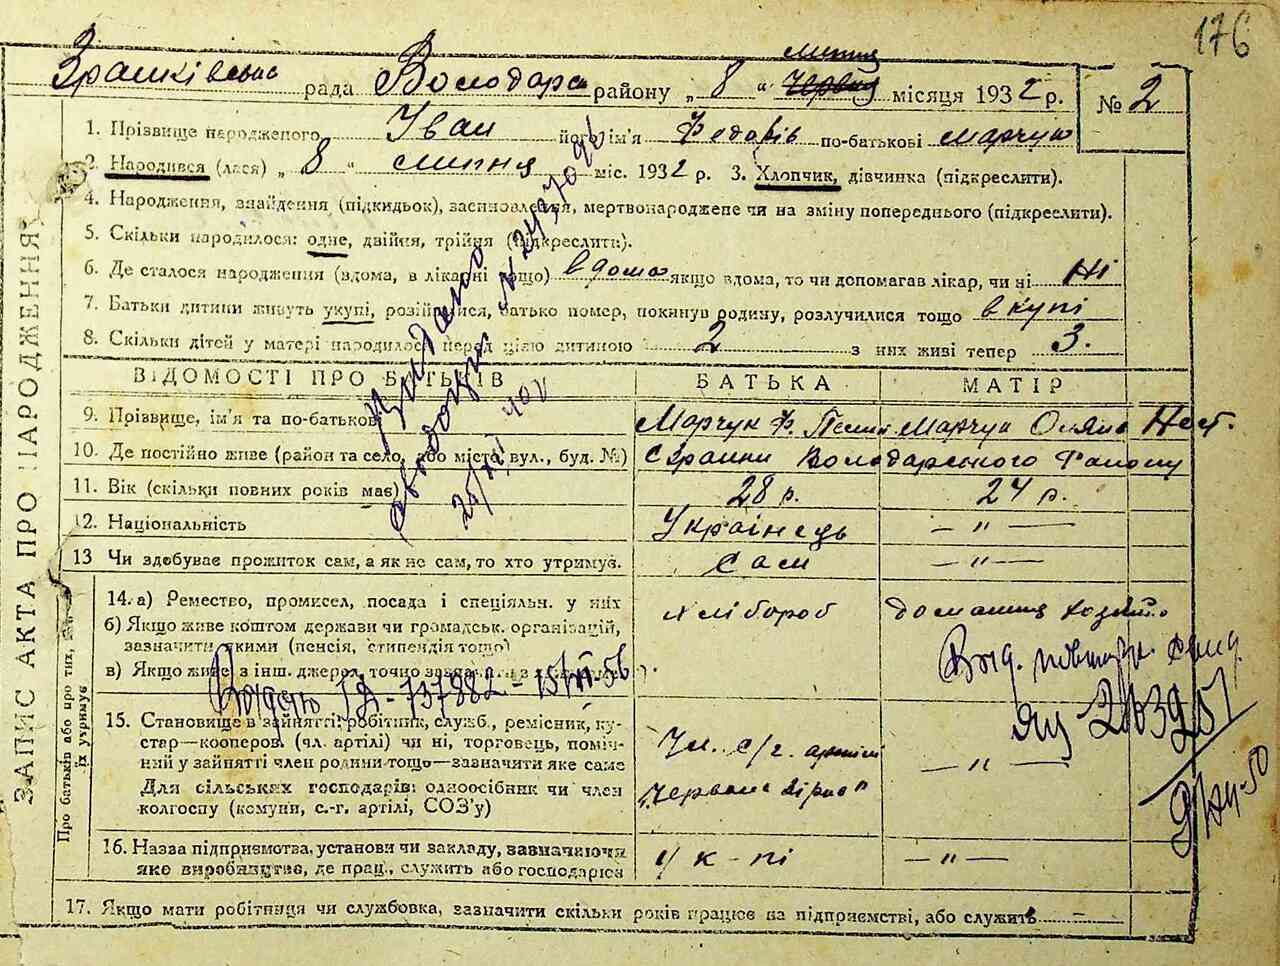 176
Зрайківська рада Володарськ району „ 8 “ Червня липня місяця 1932 р. № 2
ЗАПИС АКТА ПРО НАРОДЖЕННЯ
1. Прізвище народженого Іван його ім'я Федорів по-батькові Марчук
2. Народився (лася) „ 8 “ липня міс. 1932 р. 3. Хлопчик, дівчинка (підкреслити).
4. Народження, знайдення (підкидьок), засиновлення, мертвонароджене чи на зміну попереднього (підкреслити).
5. Скільки народилося: одне, двійня, трійня (підкреслити).
6. Де сталося народження (вдома, в лікарні тощо) вдома якщо вдома, то чи допомагав лікар, чи ні Ні
7. Батьки дитини живуть укупі, розійшлися, батько помер, покинув родину, розлучилися тощо вкупі
8. Скільки дітей у матері народилось перед цією дитиною 2 з них живі тепер 3.
ВІДОМОСТІ ПРО БАТЬКІВ БАТЬКА МАТІР
9. Прізвище, ім'я та по-батькові Марчук Ф. Марчук Оляна Нест.
10. Де постійно живе (район та село, або місто, вул., буд. №) с Зрайки Володарського району
11. Вік (скільки повних років має) 28 р. 24 р.
12. Національність Українець — „ —
13 Чи здобуває прожиток сам, а як не сам, то хто утримує. Сам — „ —
Про батьків або про тих, хто їх утримує
14. а) Ремество, промисел, посада і спеціяльн. у них хлібороб домашня хазяйка
б) Якщо живе коштом держави чи громадськ. організацій,
зазначити якими (пенсія, стипендія тощо)
в) Якщо живе з інш. джерел, точно зазначити з яких саме
15. Становище в зайнятті: робітник, служб., ремісник, ку-
стар—кооперов. (чл. артілі) чи ні, торговець, поміч-
ний у зайнятті член родини тощо—зазначити яке саме
Для сільських господарів: одноосібник чи член
колгоспу (комуни, с.-г. артілі, СОЗ'у)
Чл. с/г. артілі — „ —
„Червона зірка“
16. Назва підприємства, установи чи закладу, зазначаючи
яке виробництво, де прац., служить або господарює
у к-пі — „ —
17. Якщо мати робітниця чи службовка, зазначити скільки років працює на підприємстві, або служить —
Выдано
свидоцтво
Выдано 737882 - 15/XI 56
Выд. повторн. свид.